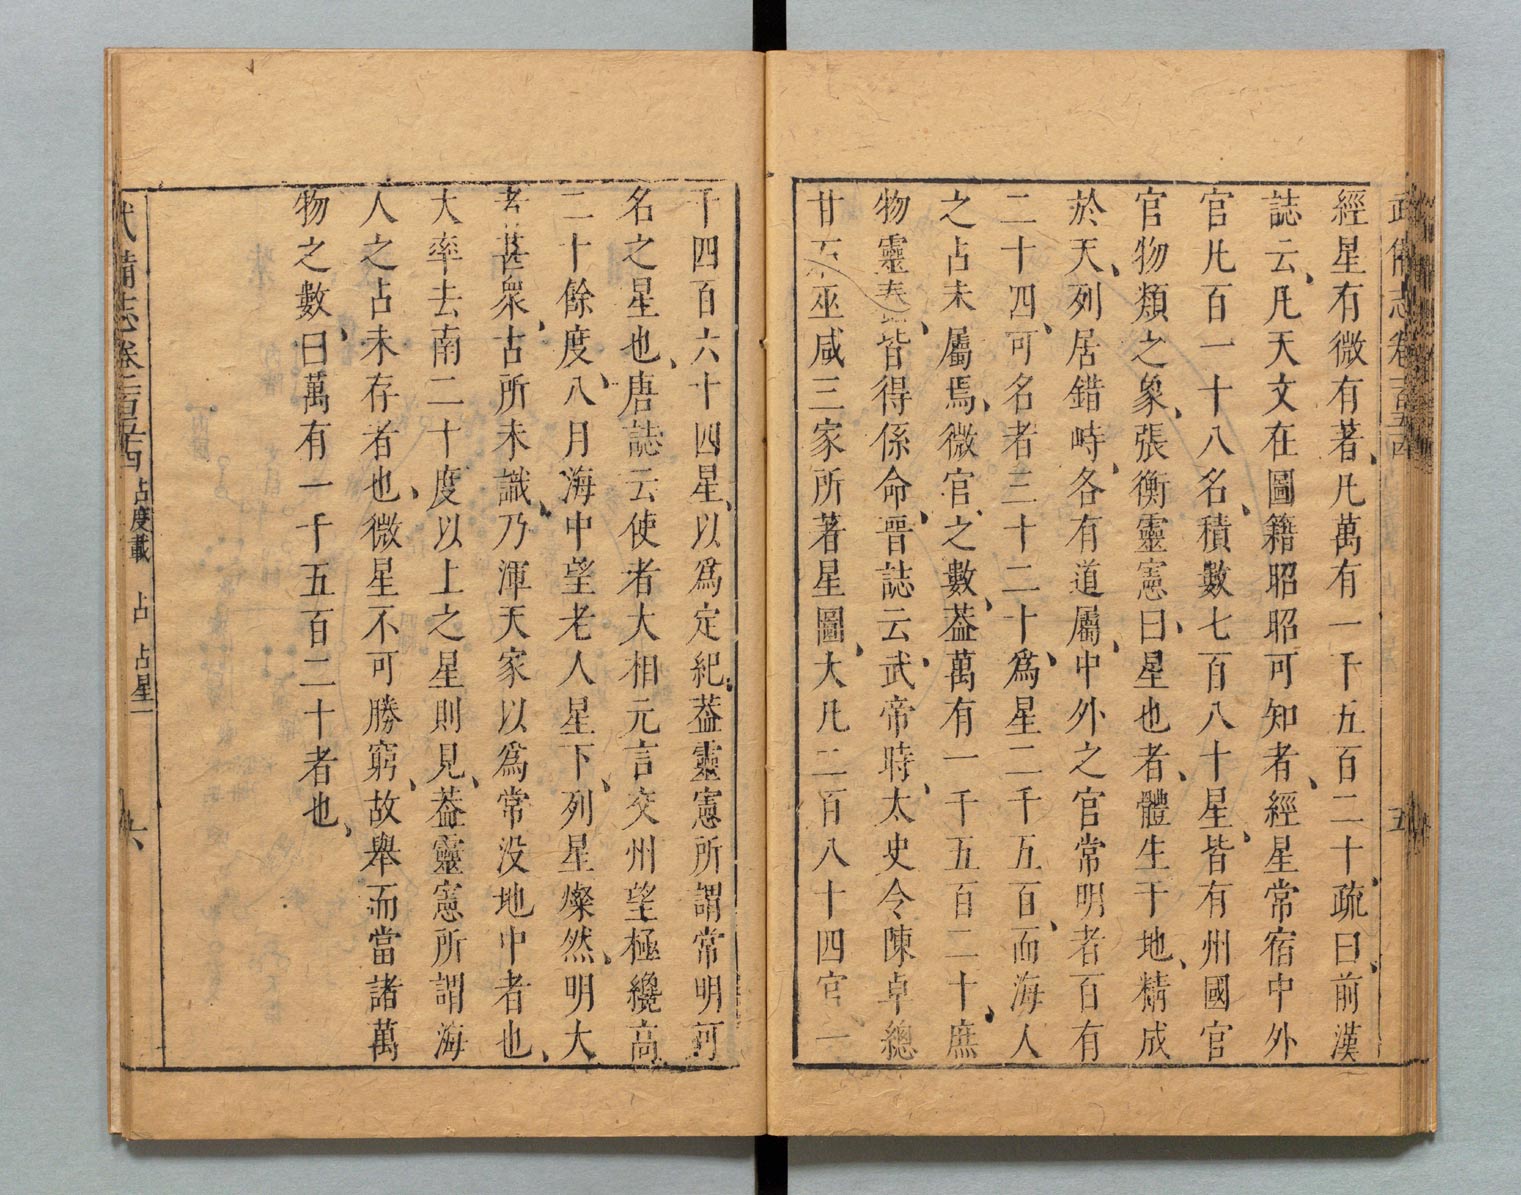 武備志卷一百五十四 五
經星有微有著、凡萬有一千五百二十、疏曰、前漢
誌云、凡天文在圖籍昭昭可知者、經星常宿中外
官凡百一十八名、積數七百八十星、皆有州國官
官物類之象、張衡靈憲曰、星也者、體生于地、精成
於天、列居錯峙、各有道屬、中外之官常明者百有
二十四、可名者三十二十、爲星二千五百、而海人
之占未屬焉、微官之數、葢萬有一千五百二十、庶
物靈蠢、皆得係命、晋誌云、武帝時、太史令陳卓總
甘石巫咸三家所著星圖、大凡二百八十四官、一
千四百六十四星、以爲定紀、葢靈憲所謂常明可
名之星也、唐誌云使者大相元言交州望極纔高
二十餘度、八月海中望老人星下、列星燦然、明大
者甚衆、古所未識、乃渾天家以爲常没地中者也、
大率去南二十度以上之星則見、葢靈憲所謂海
人之占未存者也、微星不可勝窮、故舉而當諸萬
物之數、曰萬有一千五百二十者也、
武備志卷一百五十四 占度載 占 占星一 六